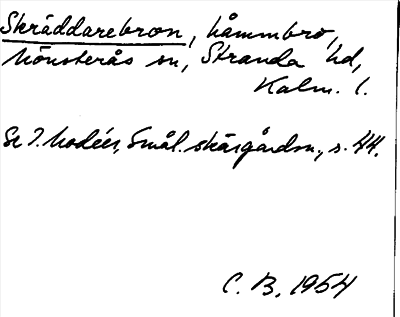 Skräddarebron, håmmbro,
Mönsterås sn, Stranda hd,
Kalm. l.
Se J. Modéer, Smål. skärgårdsn., s. 44.
C. B. 1954